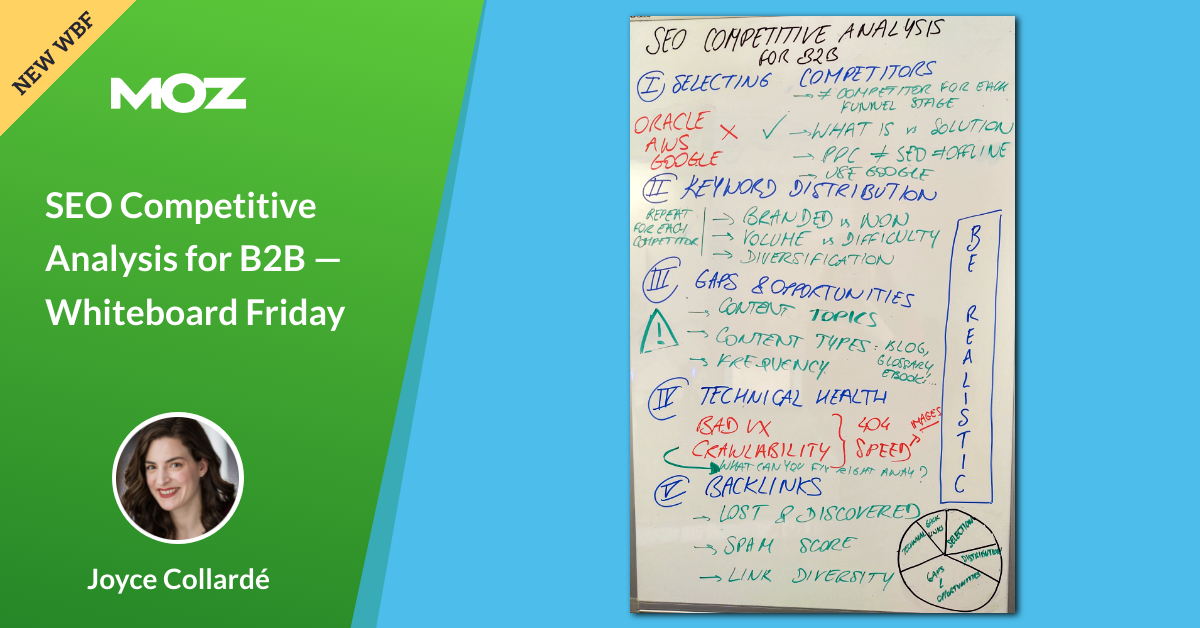 NEW WBF
MOZ
SEO Competitive
Analysis for B2B —
Whiteboard Friday
Joyce Collardé
SEO COMPETITIVE ANALYSIS
FOR B2B
I SELECTING COMPETITORS
→ ≠ COMPETITOR FOR EACH
FUNNEL STAGE
ORACLE
AWS
GOOGLE
X ✓ → WHAT IS vs SOLUTION
→ PPC ≠ SEO ≠ OFFLINE
→ USE GOOGLE
II KEYWORD DISTRIBUTION
REPEAT
FOR EACH
COMPETITOR
→ BRANDED vs NON
→ VOLUME vs DIFFICULTY
→ DIVERSIFICATION
III GAPS & OPPORTUNITIES
! → CONTENT TOPICS
→ CONTENT TYPES: BLOG,
GLOSSARY,
EBOOK...
→ FREQUENCY
IV TECHNICAL HEALTH
BAD UX
CRAWLABILITY
404
SPEED → IMAGES
WHAT CAN YOU FIX RIGHT AWAY?
V BACKLINKS
→ LOST & DISCOVERED
→ SPAM SCORE
→ LINK DIVERSITY
BE REALISTIC
TECHNICAL
BACK
LINKS
SELECTION
DISTRIBUTION
GAPS
&
OPPORTUNITIES